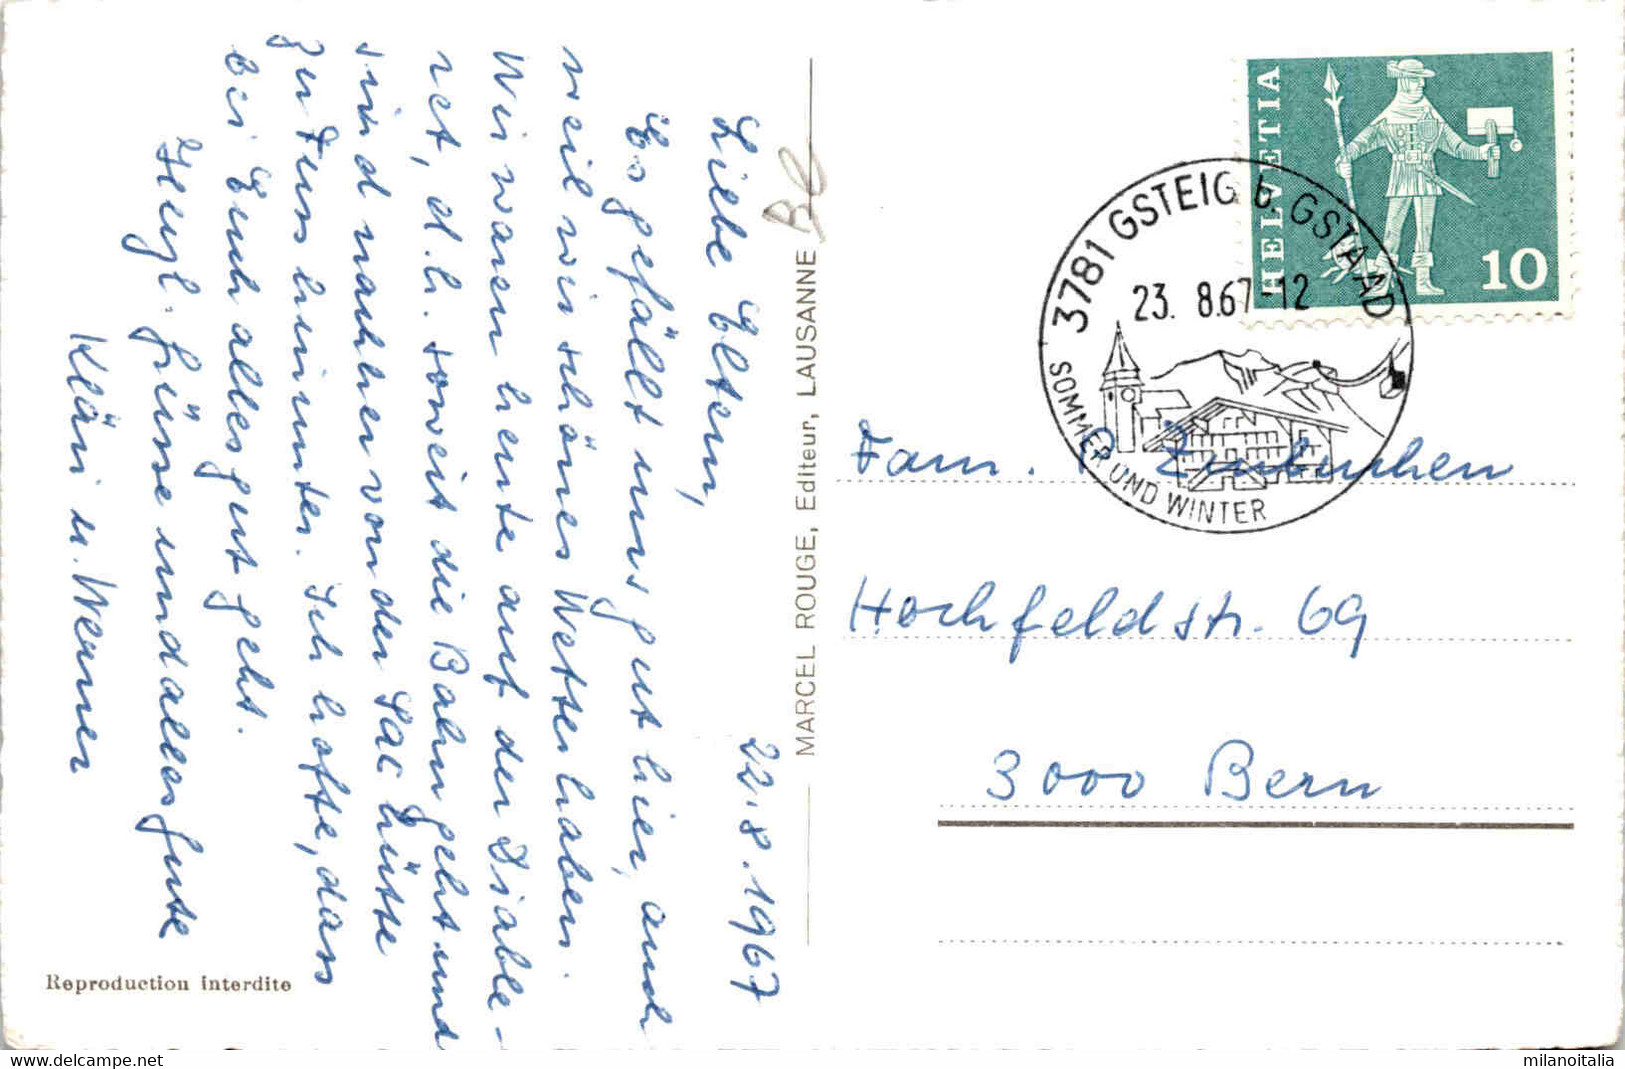 22.8.1967
Liebe Eltern,
Es gefällt uns gut hier, auch
weil wir schönes Wetter haben.
Wir waren heute auf der Diable-
ret, d.h. soweit die Bahn geht und
sind nachher von der Sac Hütte
zu Fuss hinunter. Ich hoffe, dass
bei Euch alles gut geht.
Herzl. Grüsse und alles Gute
Kläri u. Werner
Reproduction interdite
MARCEL ROUGE, Editeur, LAUSANNE
HELVETIA
10
3781 GSTEIG b. GSTAAD
23. 8.67-12
SOMMER UND WINTER
Fam. Zurbuchen
Hochfeldstr. 69
3000 Bern
delcampe.net
milanoitalia